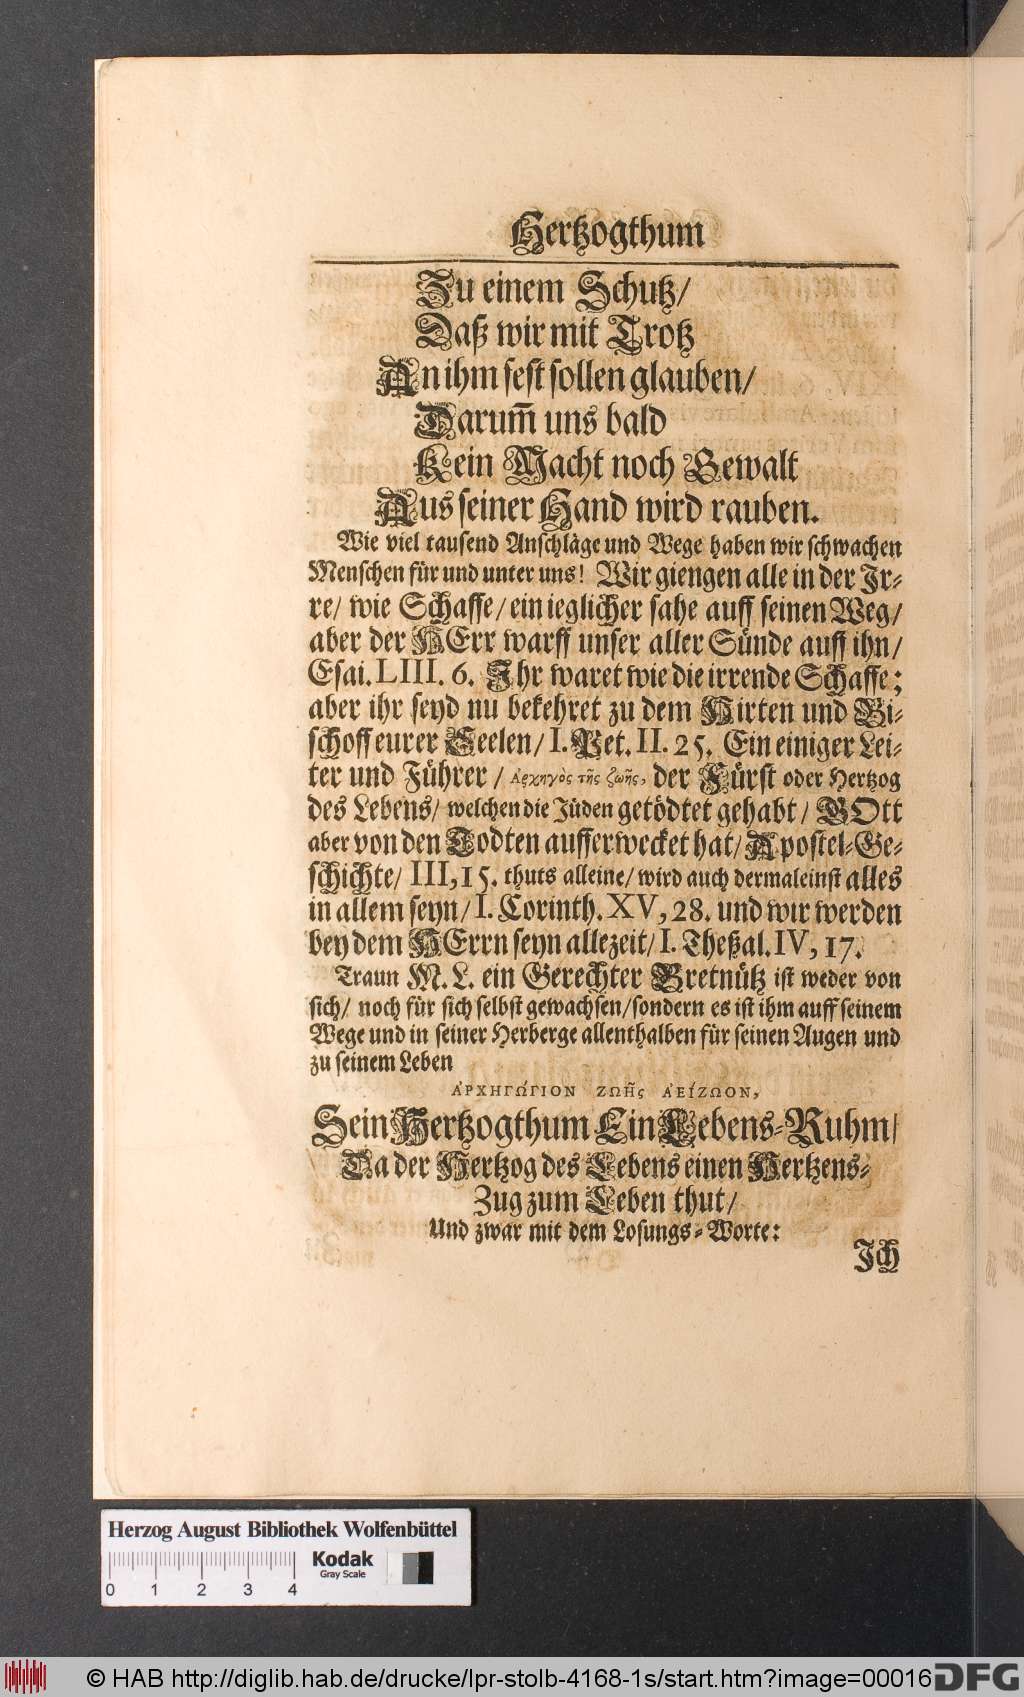 Hertzogthum
Zu einem Schutz/
Daß wir mit Trotz
An ihm fest sollen glauben/
Darum̃ uns bald
Kein Macht noch Gewalt
Aus seiner Hand wird rauben.
Wie viel tausend Anschläge und Wege haben wir schwachen
Menschen für und unter uns! Wir giengen alle in der Jr-
re/ wie Schaffe/ ein ieglicher sahe auff seinen Weg/
aber der HErr warff unser aller Sünde auff ihn/
Esai. LIII. 6. Jhr waret wie die irrende Schaffe;
aber ihr seyd nu bekehret zu dem Hirten und Bi-
schoff eurer Seelen/ I. Pet. II. 25. Ein einiger Lei-
ter und Führer/ Ἀρχηγὸς τῆς ζωῆς, der Fürst oder Hertzog
des Lebens/ welchen die Jüden getödtet gehabt/ GOtt
aber von den Todten aufferwecket hat/ Apostel-Ge-
schichte/ III, 15. thuts alleine/ wird auch dermaleinst alles
in allem seyn/ I. Corinth. XV, 28. und wir werden
bey dem HErrn seyn allezeit/ I. Theßal. IV, 17.
Traun M. L. ein Gerechter Bretnütz ist weder von
sich/ noch für sich selbst gewachsen/ sondern es ist ihm auff seinem
Wege und in seiner Herberge allenthalben für seinen Augen und
zu seinem Leben
ἈΡΧΗΓΏΓΙΟΝ ΖΩΗ͂ς ἈΕΊΖΩΟΝ,
Sein Hertzogthum Ein Lebens-Ruhm/
Da der Hertzog des Lebens einen Hertzens-
Zug zum Leben thut/
Und zwar mit dem Losungs-Worte:
Jch
Herzog August Bibliothek Wolfenbüttel
Kodak
Gray Scale
0 1 2 3 4
© HAB http://diglib.hab.de/drucke/lpr-stolb-4168-1s/start.htm?image=00016
DFG